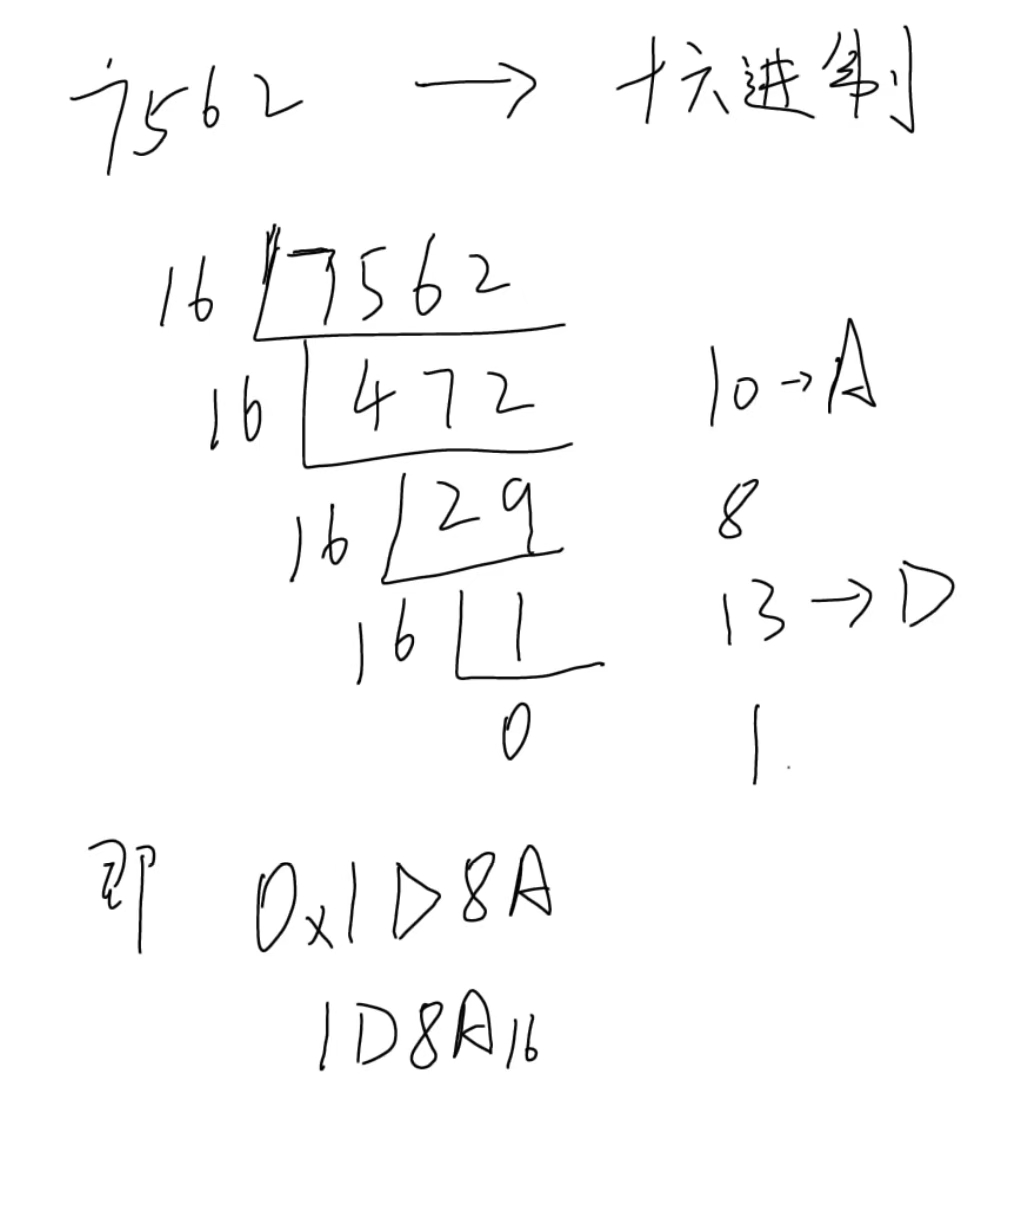 7562 → 十六进制
16 7562
16 472 10→A
16 29 8
16 1 13→D
0 1
即 0x1D8A
1D8A16